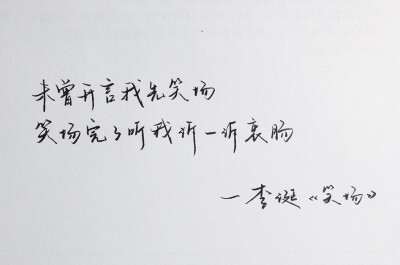 未曾开言我先笑场
笑场完了听我诉一诉衷肠
一李诞《笑场》